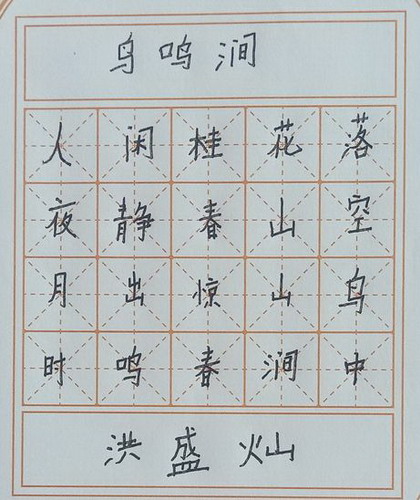 鸟鸣涧
人闲桂花落
夜静春山空
月出惊山鸟
时鸣春涧中
洪盛灿